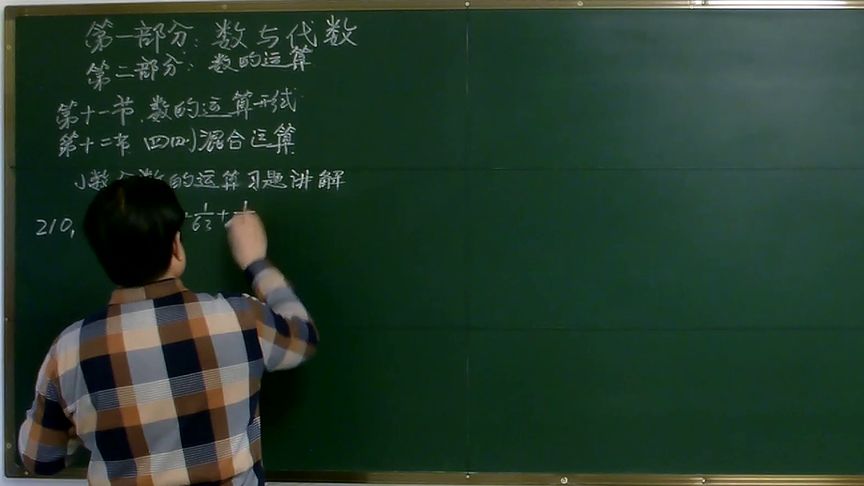 第一部分：数与代数
第二部分：数的运算
第十一节、数的运算形式
第十二节 四则混合运算
小数 数的运算习题讲解
210、 + 1/63 +